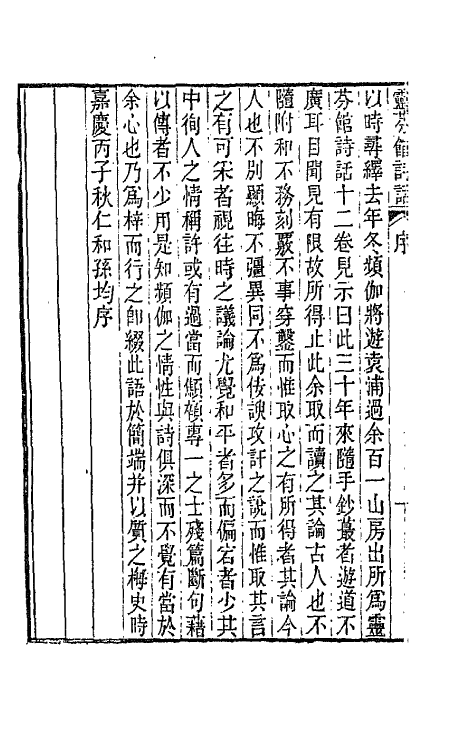 靈芬館詩話 序
以時尋繹去年冬頻伽將遊袁浦過余百一山房出所爲靈
芬館詩話十二卷見示曰此三十年來隨手鈔蕞者遊道不
廣耳目聞見有限故所得止此余取而讀之其論古人也不
隨附和不務刻覈不事穿鑿而惟取心之有所得者其論今
人也不別顯晦不彊異同不爲伎諛攻訐之說而惟取其言
之有可采者視往時之議論尤覺和平者多而偏宕者少其
中徇人之情稱許或有過當而顑頷專一之士殘篇斷句藉
以傳者不少用是知頻伽之情性與詩俱深而不覺有當於
余心也乃爲梓而行之卽綴此語於簡端并以質之梅史時
嘉慶丙子秋仁和孫均序